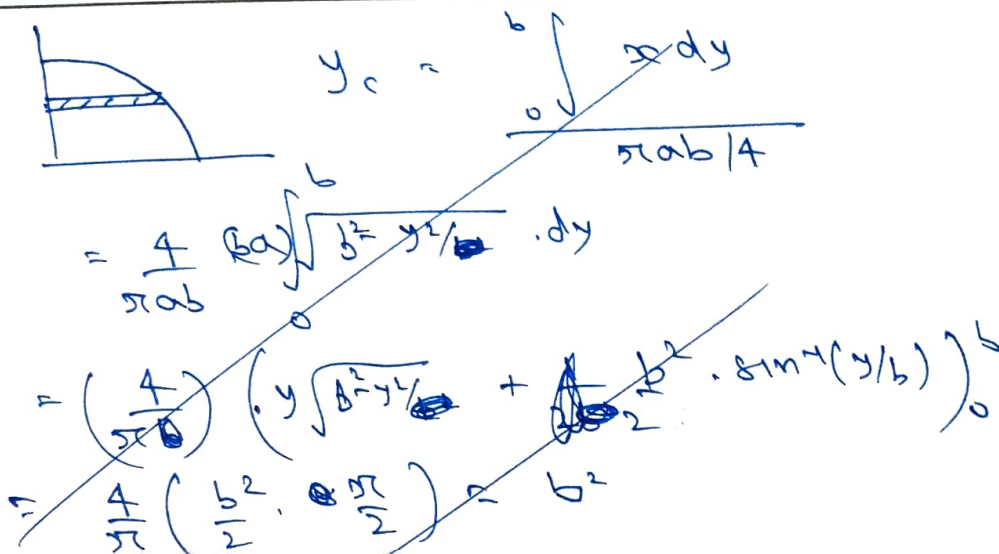 y_c = ∫_0^b x dy / (πab/4)
= 4/(πab) (ba) ∫_0^b √(b² - y²/) . dy
= (4/π) ( . y √(b² - y²/) + b²/2 . sin⁻¹(y/b) )_0^b
= 4/π ( b²/2 . π/2 ) = b²